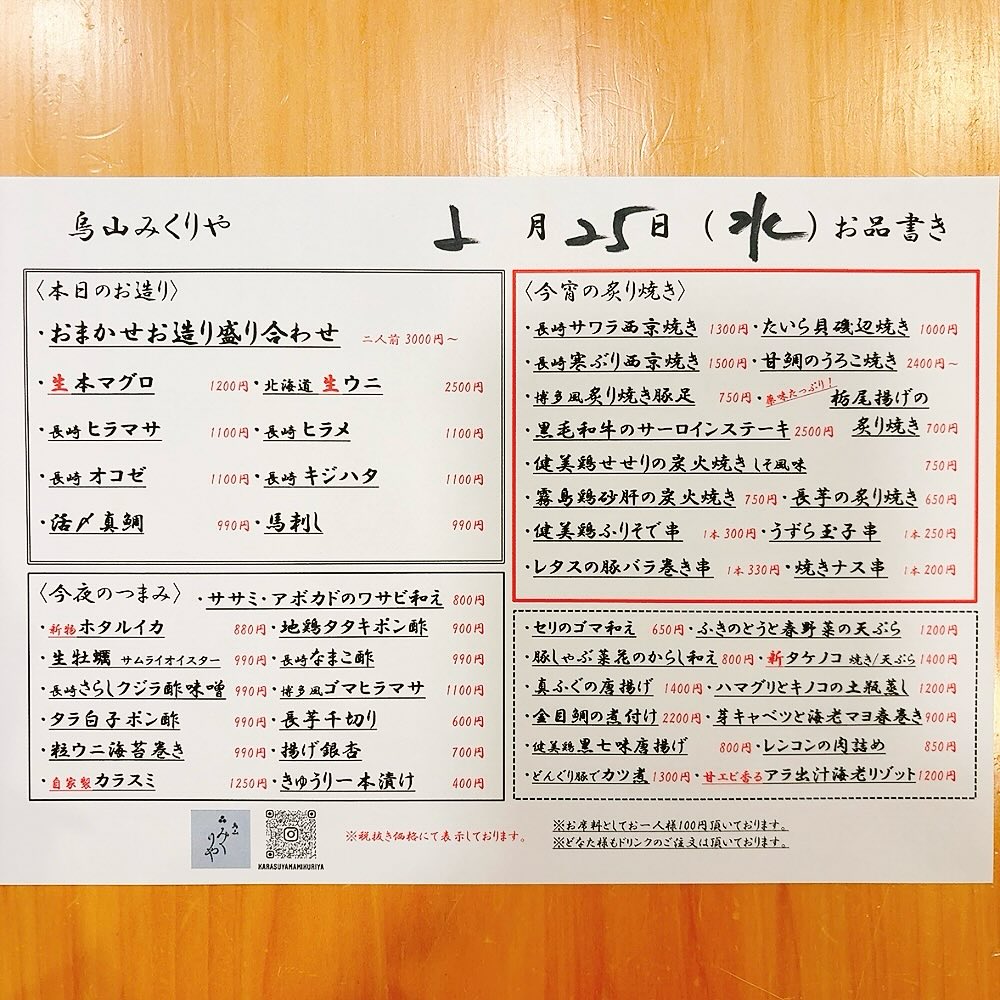 烏山みくりや
月25日(水)お品書き
〈本日のお造り〉
・おまかせお造り盛り合わせ 二人前 3000円～
・生本マグロ 1200円・北海道 生ウニ 2500円
・長崎 ヒラマサ 1100円・長崎 ヒラメ 1100円
・長崎 オコゼ 1100円・長崎 キジハタ 1100円
・活〆真鯛 990円・馬刺し 990円
〈今夜のつまみ〉・ササミ・アボカドのワサビ和え 800円
・新物ホタルイカ 880円・地鶏タタキポン酢 900円
・生牡蠣 サムライオイスター 990円・長崎なまこ酢 990円
・長崎さらしクジラ酢味噌 990円・博多風ゴマヒラマサ 1100円
・タラ白子ポン酢 990円・長芋千切り 600円
・粒ウニ海苔巻き 990円・揚げ銀杏 700円
・自家製カラスミ 1250円・きゅうり一本漬け 400円
〈今宵の炙り焼き〉
・長崎サワラ西京焼き 1300円・たいら貝磯辺焼き 1000円
・長崎寒ぶり西京焼き 1500円・甘鯛のうろこ焼き 2400円～
・博多風炙り焼き豚足 750円・薬味たっぷり！栃尾揚げの
・黒毛和牛のサーロインステーキ 2500円 炙り焼き 700円
・健美鶏せせりの炭火焼き しそ風味 750円
・霧島鶏砂肝の炭火焼き 750円・長芋の炙り焼き 650円
・健美鶏ふりそで串 1本 300円・うずら玉子串 1本 250円
・レタスの豚バラ巻き串 1本 330円・焼きナス串 1本 200円
・セリのゴマ和え 650円・ふきのとうと春野菜の天ぷら 1200円
・豚しゃぶ菜花のからし和え 800円・新タケノコ 焼き/天ぷら 1400円
・真ふぐの唐揚げ 1400円・ハマグリとキノコの土瓶蒸し 1200円
・金目鯛の煮付け 2200円・芽キャベツと海老マヨ春巻き 900円
・健美鶏黒七味唐揚げ 800円・レンコンの肉詰め 850円
・どんぐり豚でカツ煮 1300円・甘エビ香るアラ出汁海老リゾット 1200円
みくりや
KARASUYAMAMIKURIYA
※税抜き価格にて表示しております。
※お席料としてお一人様100円頂いております。
※どなた様もドリンクのご注文は頂いております。